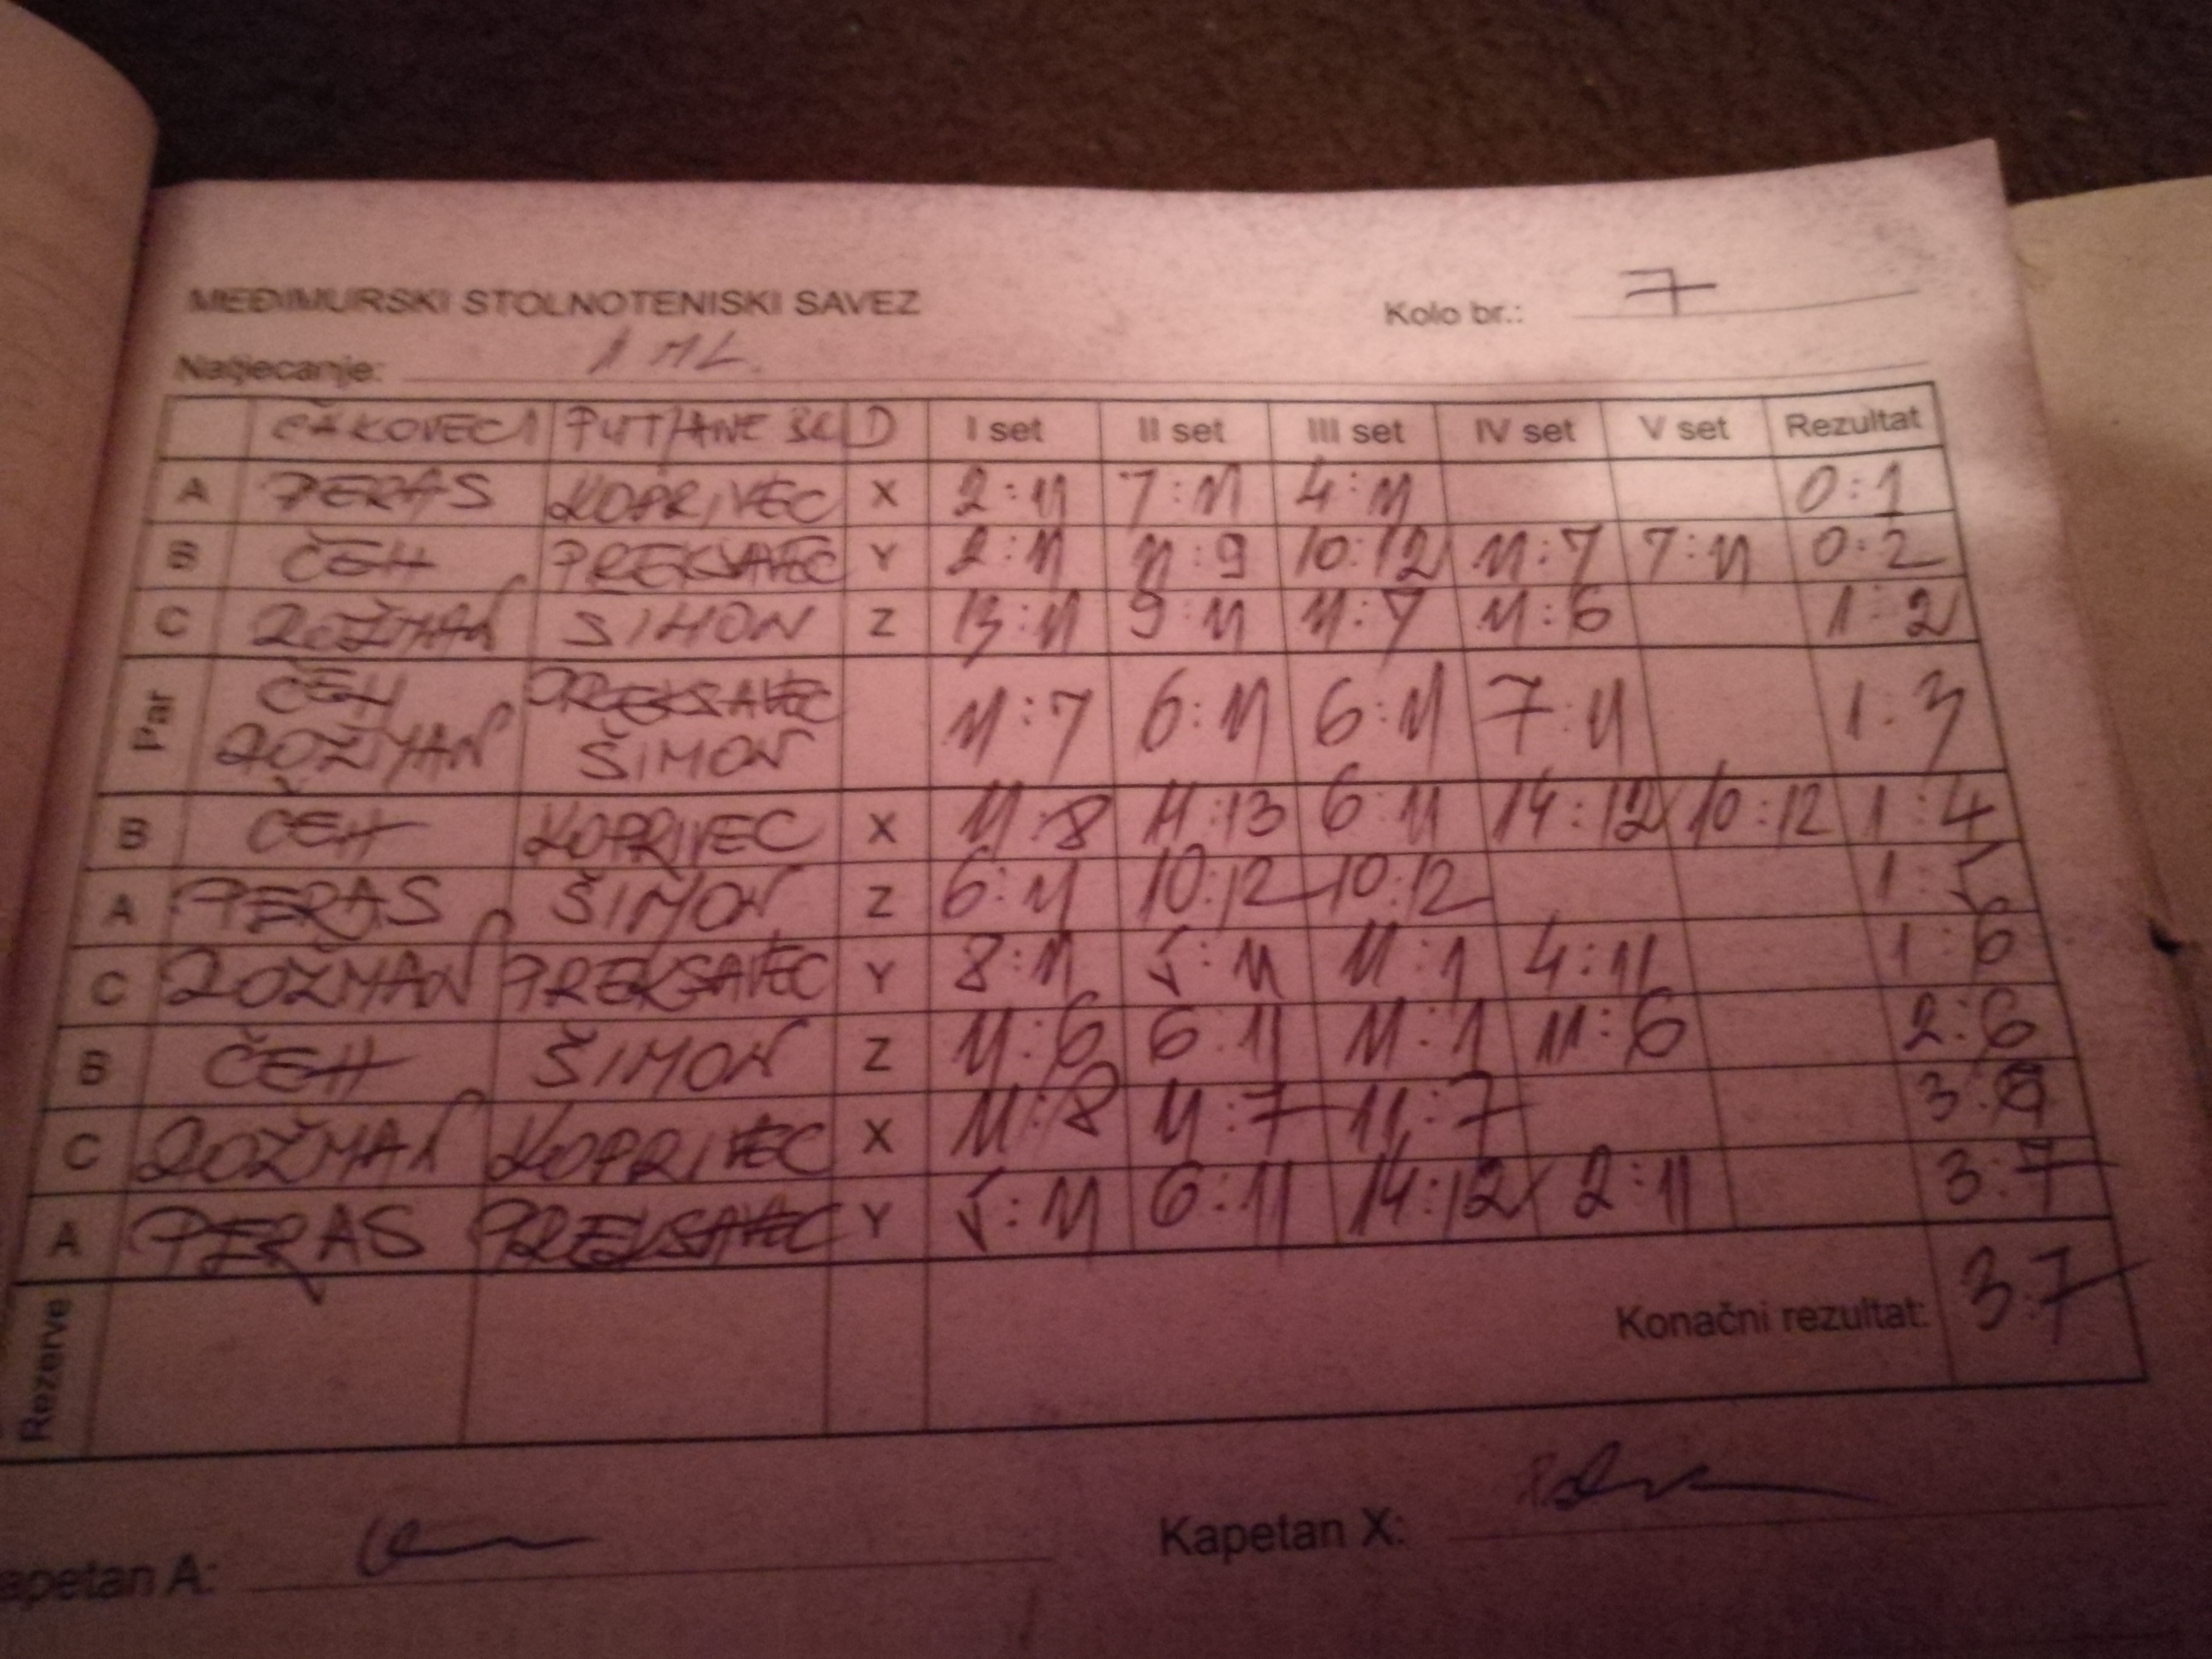 MEĐIMURSKI STOLNOTENISKI SAVEZ Kolo br.: 7
Natjecanje: 1 ML.
ČAKOVEC 1 PUTJANE D I set II set III set IV set V set Rezultat
A PERAS KOPRIVEC X 2:11 7:11 4:11 0:1
B ČEH PREKSAVEC Y 2:11 11:9 10:12 11:7 7:11 0:2
C ROŽMAN SIMON Z 13:11 9:11 11:7 11:6 1:2
Par ČEH PREKSAVEC 11:7 6:11 6:11 7:11 1:3
ROŽMAN ŠIMON
B ČEH KOPRIVEC X 11:8 11:13 6:11 14:12 10:12 1:4
A PERAS ŠIMON Z 6:11 10:12 10:12 1:5
C ROŽMAN PREKSAVEC Y 8:11 5:11 11:1 4:11 1:6
B ČEH ŠIMON Z 11:6 6:11 11:1 11:6 2:6
C ROŽMAN KOPRIVEC X 11:8 11:7 11:7 3:6
A PERAS PREKSAVEC Y 5:11 6:11 14:12 2:11 3:7
Rezerve Konačni rezultat: 3:7
apetan A: Kapetan X: